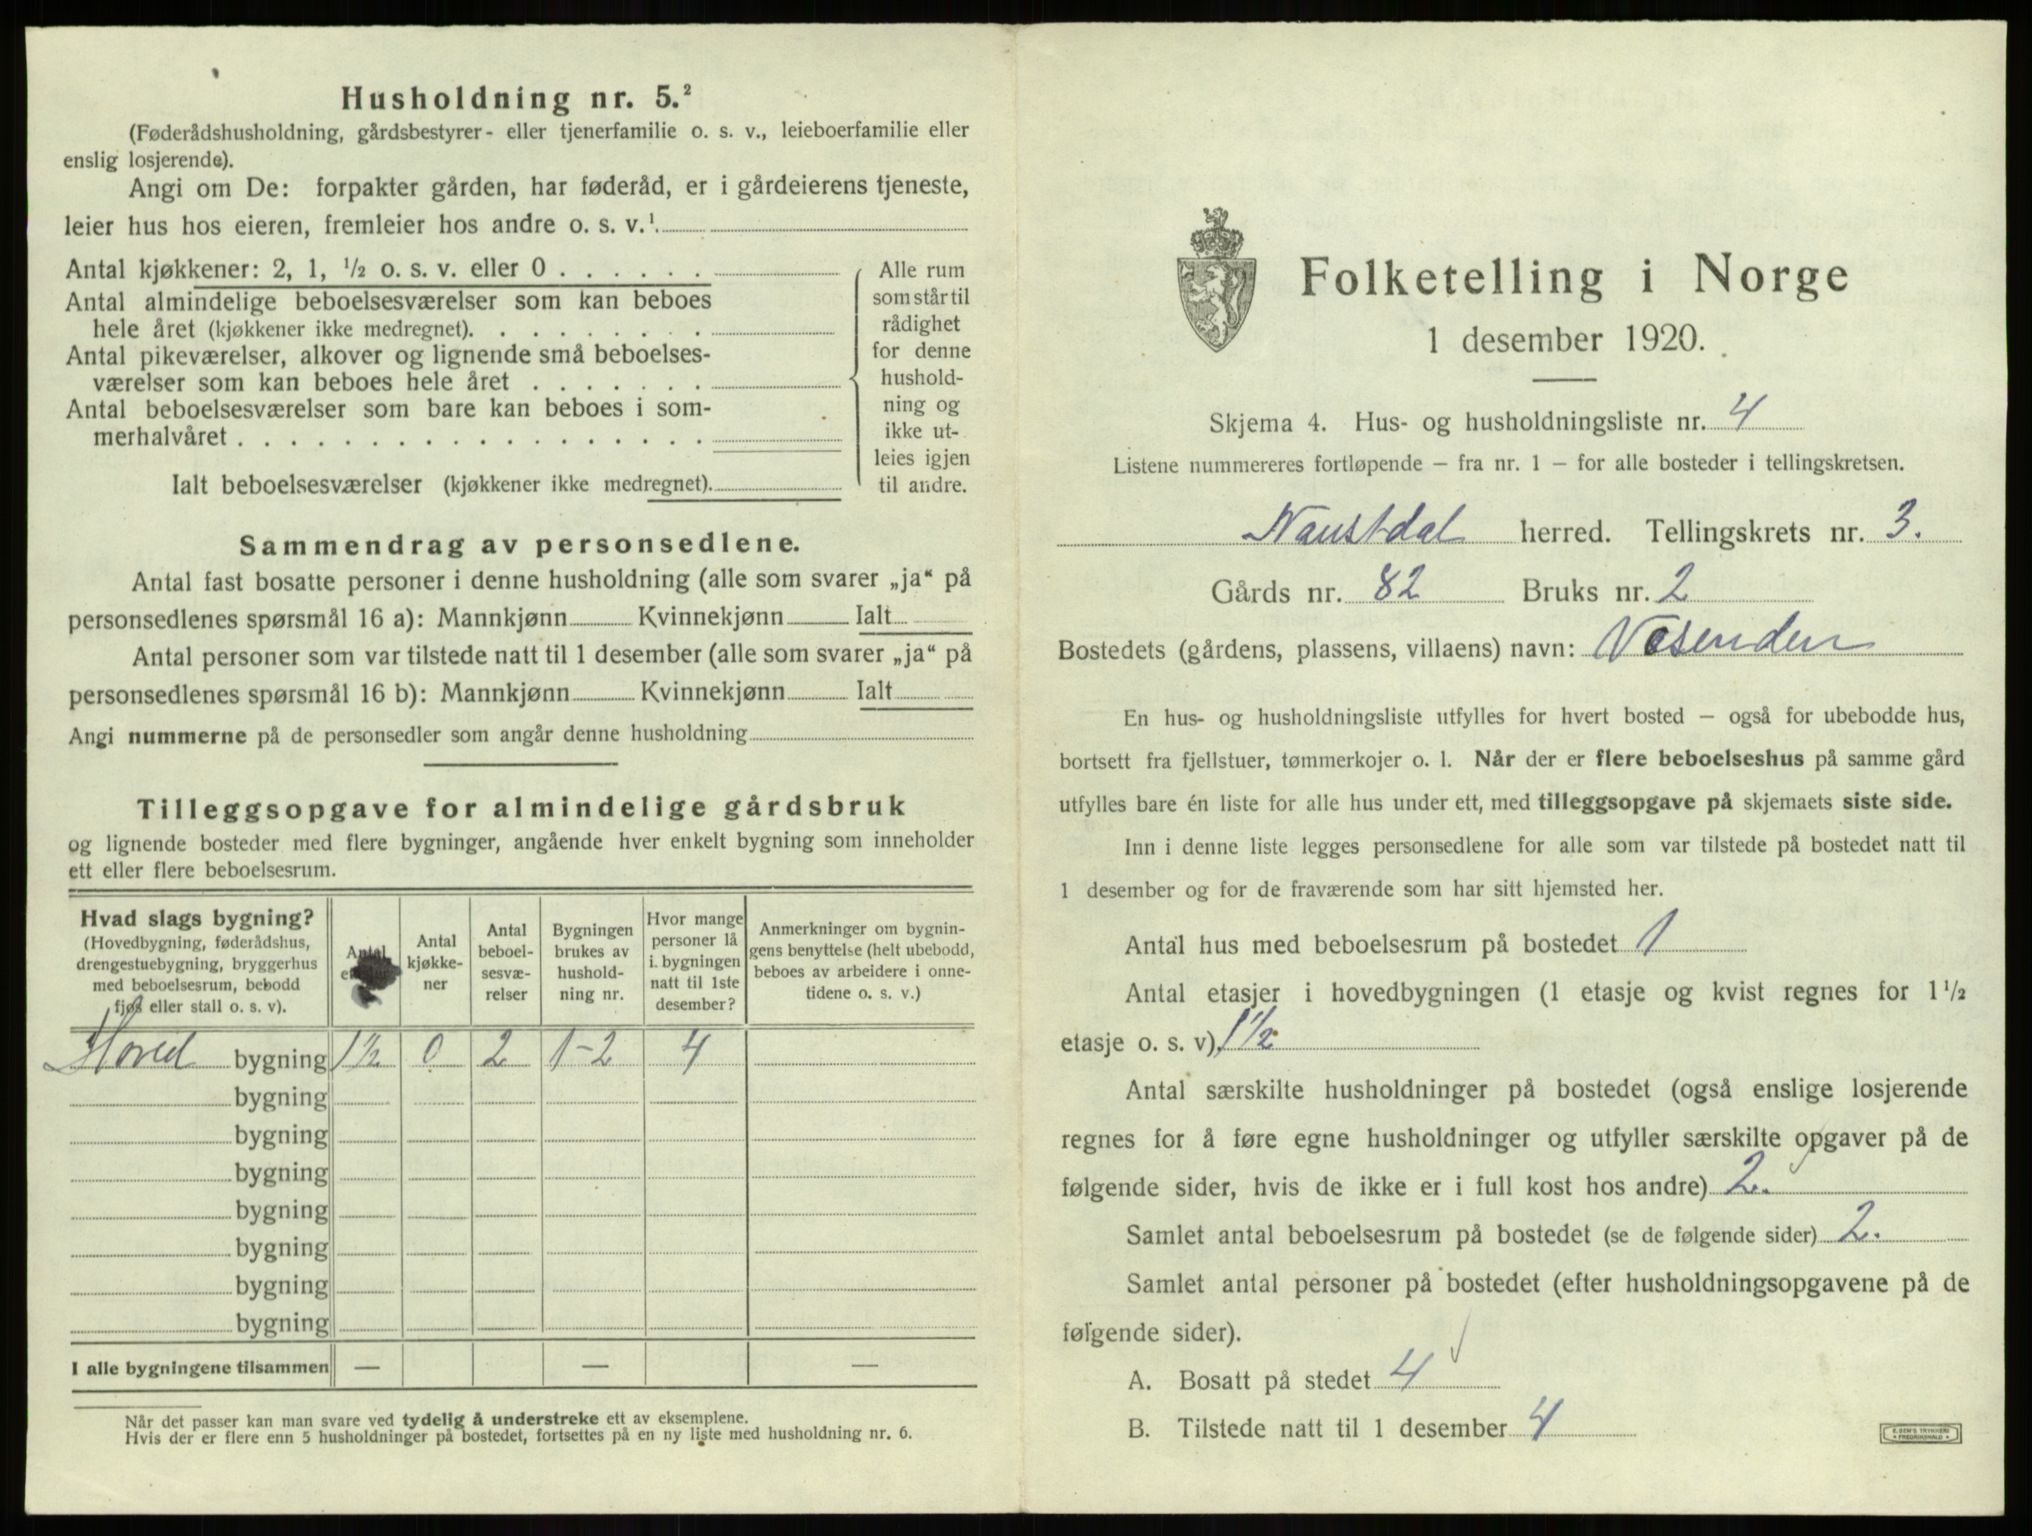 Husholdning nr. 5.²
(Føderådshusholdning, gårdsbestyrer- eller tjenerfamilie o. s. v., leieboerfamilie eller
enslig losjerende).
Angi om De: forpakter gården, har føderåd, er i gårdeierens tjeneste,
leier hus hos eieren, fremleier hos andre o. s. v.¹
Antal kjøkkener: 2, 1, ½ o. s. v. eller 0
Antal almindelige beboelsesværelser som kan beboes
hele året (kjøkkener ikke medregnet).
Antal pikeværelser, alkover og lignende små beboelses-
værelser som kan beboes hele året
Antal beboelsesværelser som bare kan beboes i som-
merhalvåret
Ialt beboelsesværelser (kjøkkener ikke medregnet).
Alle rum
som står til
rådighet
for denne
hushold-
ning og
ikke ut-
leies igjen
til andre.
Sammendrag av personsedlene.
Antal fast bosatte personer i denne husholdning (alle som svarer „ja“ på
personsedlenes spørsmål 16 a): Mannkjønn Kvinnekjønn Ialt
Antal personer som var tilstede natt til 1 desember (alle som svarer „ja“ på
personsedlenes spørsmål 16 b): Mannkjønn Kvinnekjønn Ialt
Angi nummerne på de personsedler som angår denne husholdning
Tilleggsopgave for almindelige gårdsbruk
og lignende bosteder med flere bygninger, angående hver enkelt bygning som inneholder
ett eller flere beboelsesrum.
Hvad slags bygning?
(Hovedbygning, føderådshus,
drengestuebygning, bryggerhus
med beboelsesrum, bebodd
fjøs eller stall o. s. v).
Antal
Antal
kjøkke-
ner
Antal
beboel-
sesvæ-
relser
Bygningen
brukes av
hushold-
ning nr.
Hvor mange
personer lå
i bygningen
natt til 1ste
desember?
Anmerkninger om bygnin-
gens benyttelse (helt ubebodd,
beboes av arbeidere i onne-
tidene o. s. v.)
Hoved bygning 1½ 0 2 1-2 4
bygning
bygning
bygning
bygning
bygning
bygning
bygning
I alle bygningene tilsammen — — —
Når det passer kan man svare ved tydelig å understreke ett av eksemplene.
Hvis der er flere enn 5 husholdninger på bostedet, fortsettes på en ny liste med husholdning nr. 6.
Folketelling i Norge
1 desember 1920.
Skjema 4. Hus- og husholdningsliste nr. 4
Listene nummereres fortløpende – fra nr. 1 – for alle bosteder i tellingskretsen.
Naustdal herred. Tellingskrets nr. 3.
Gårds nr. 82 Bruks nr. 2
Bostedets (gårdens, plassens, villaens) navn: Vosenden
En hus- og husholdningsliste utfylles for hvert bosted – også for ubebodde hus,
bortsett fra fjellstuer, tømmerkojer o. l. Når der er flere beboelseshus på samme gård
utfylles bare én liste for alle hus under ett, med tilleggsopgave på skjemaets siste side.
Inn i denne liste legges personsedlene for alle som var tilstede på bostedet natt til
1 desember og for de fraværende som har sitt hjemsted her.
Antal hus med beboelsesrum på bostedet 1
Antal etasjer i hovedbygningen (1 etasje og kvist regnes for 1½
etasje o. s. v) 1½
Antal særskilte husholdninger på bostedet (også enslige losjerende
regnes for å føre egne husholdninger og utfyller særskilte opgaver på de
følgende sider, hvis de ikke er i full kost hos andre) 2.
Samlet antal beboelsesrum på bostedet (se de følgende sider) 2.
Samlet antal personer på bostedet (efter husholdningsopgavene på de
følgende sider).
A. Bosatt på stedet 4
B. Tilstede natt til 1 desember 4